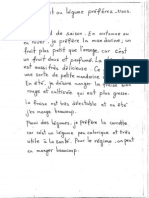 et ou légume préférée. Vous
de saison. En automne ou
en hiver, je préfère la mandarine, un
fruit plus petit que l'orange, car c'est
un fruit doux et parfumé.
aussi très délicieuse.
une sorte de petite mandarine
En été, je désire manger la fraise bien
rouge et cultivée qui est plus grosse.
la fraise est très délectable et en été j'en
mange beaucoup.
Pour des légumes, je préfère la carotte
car c'est un légume peu calorique et très
utile à la santé. Pour le régime, on peut
en manger beaucoup.